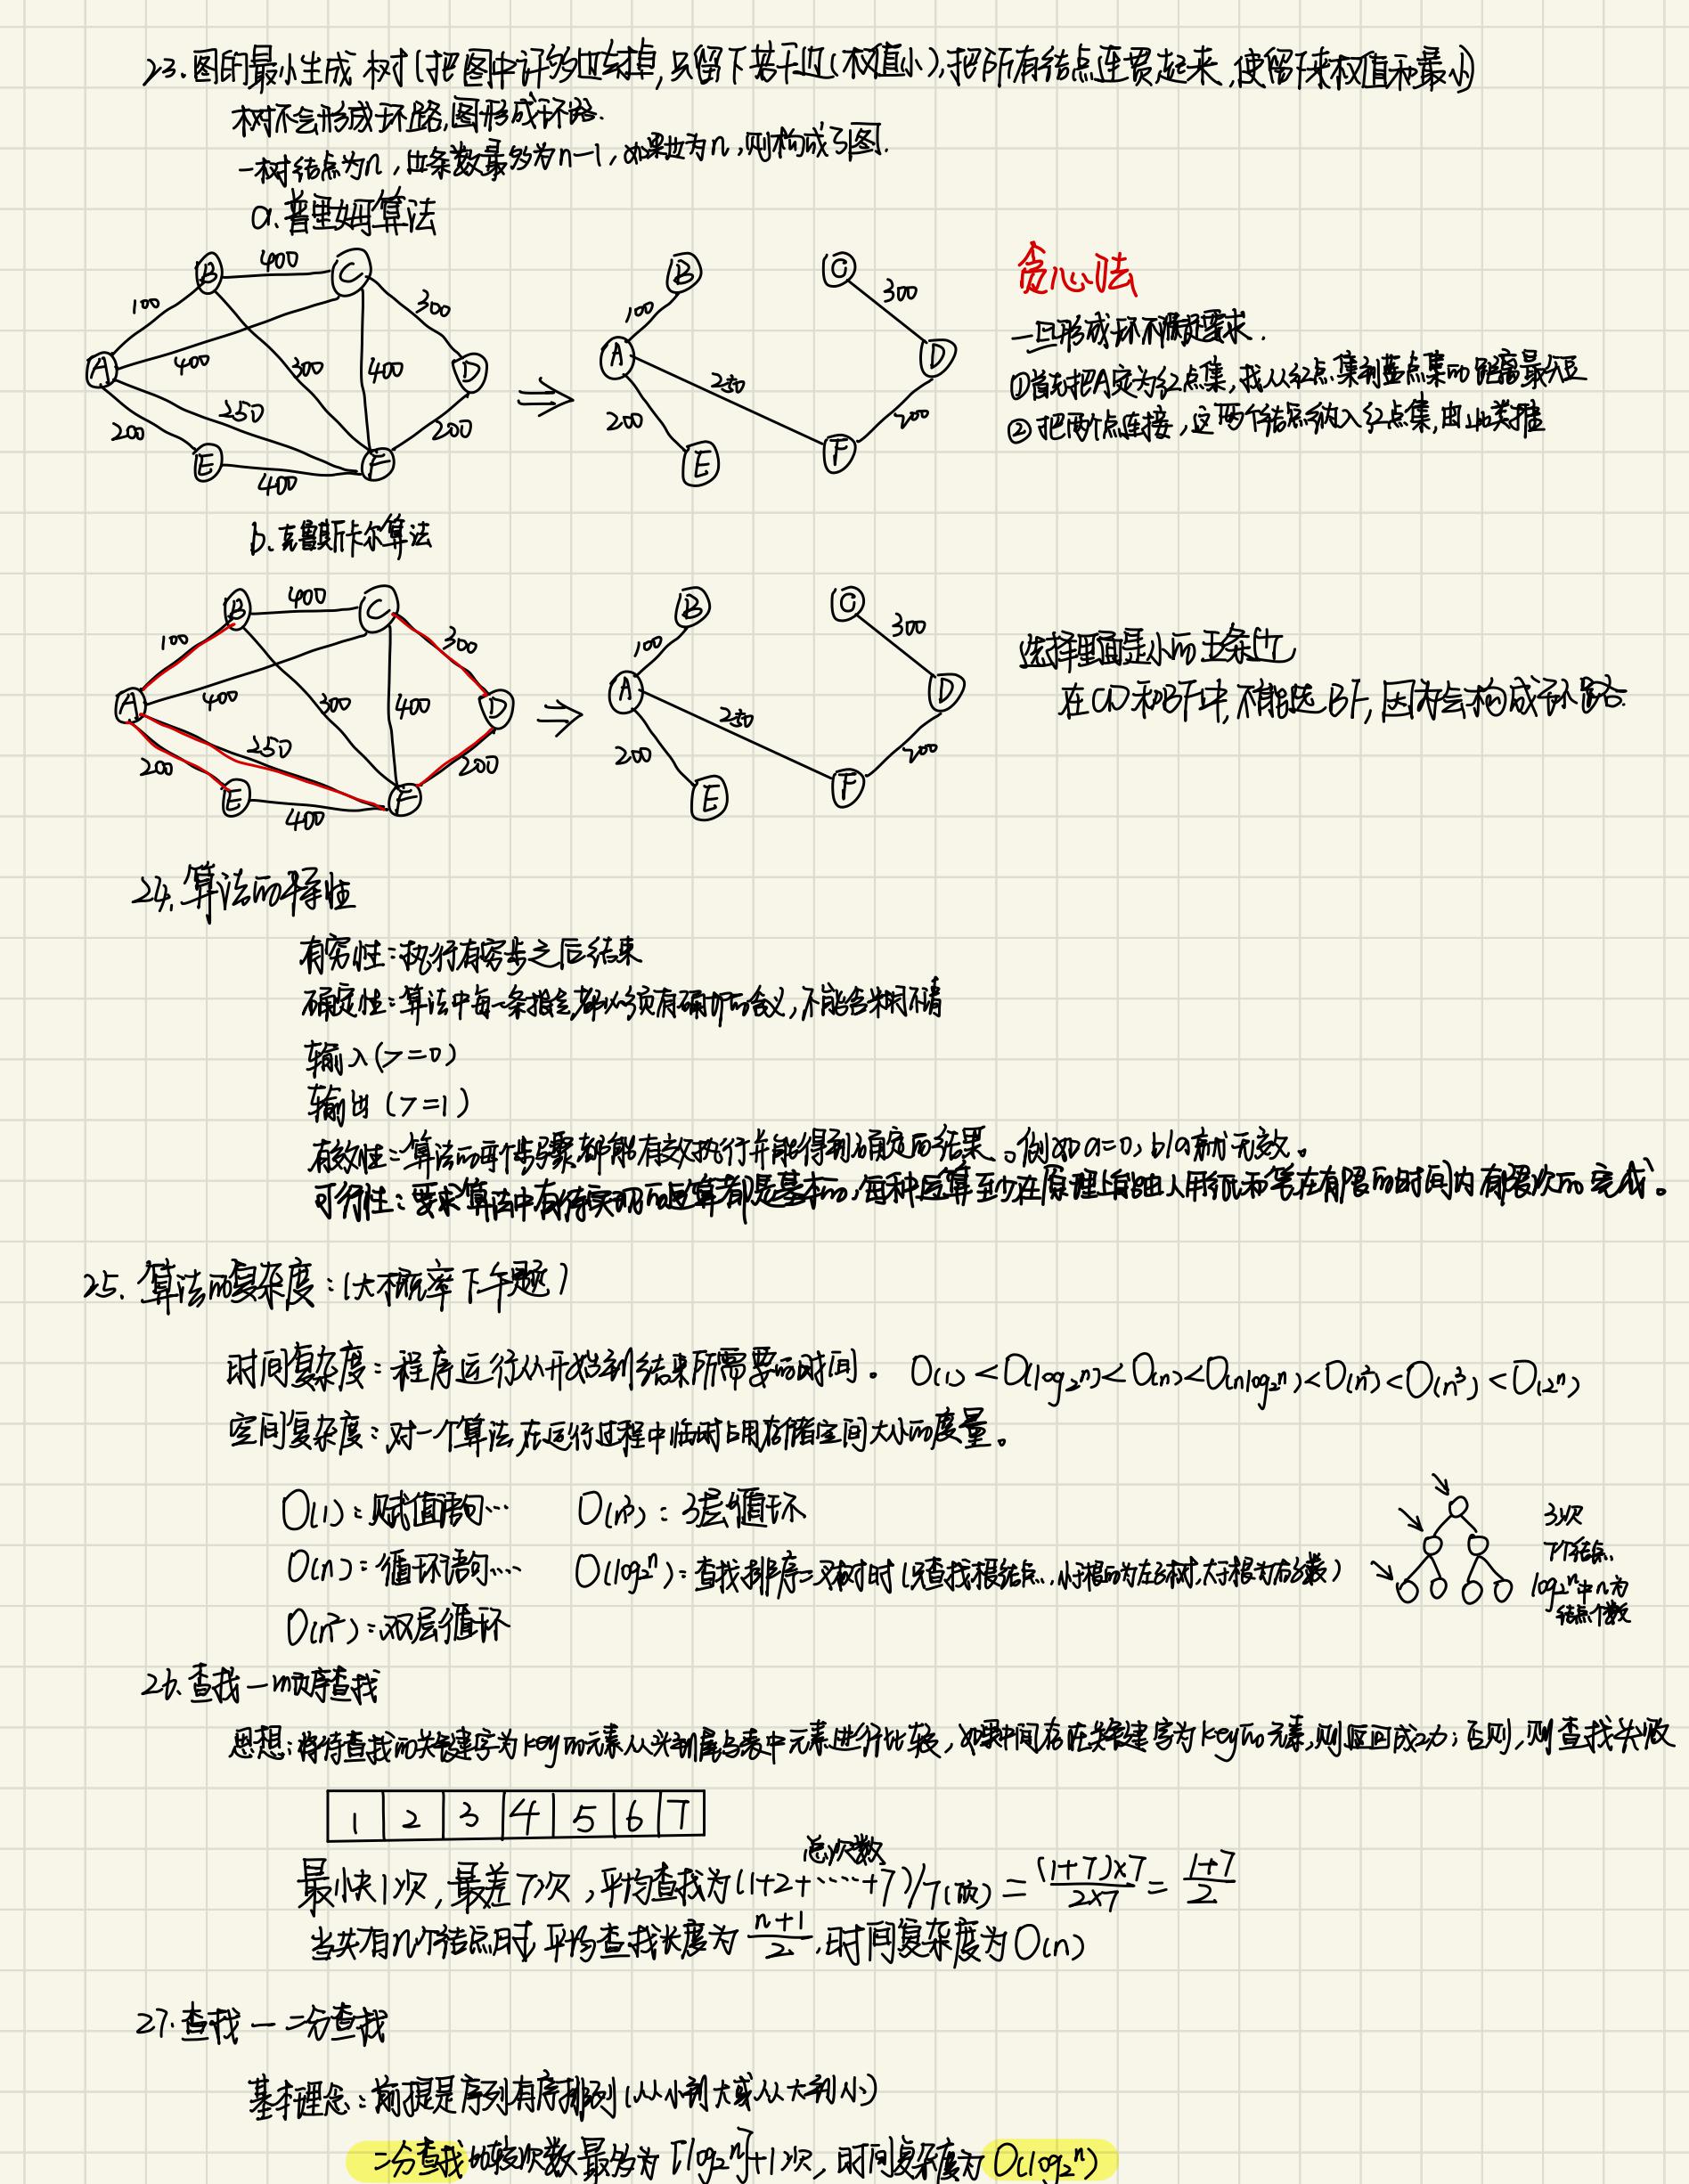 23.图的最小生成树(把图中许多边去掉,只留下若干边(权值小),把所有结点连贯起来,使留下来权值和最小)
树不会形成环路,图形成环路.
一树结点为n,边条数最多为n-1,如果边为n,则构成了图.
a.普里姆算法
贪心法
一旦形成环不满足要求.
①首先把A定为红点集,找从红点集到蓝点集的距离最短
②把两个点连接,这两个结点纳入红点集,由此类推
B 400 C 100 300 A 400 300 400 D 250 200 200 E F 400
⇒
B C 100 300 A D 250 200 200 E F
b.克鲁斯卡尔算法
B 400 C 100 300 A 400 300 400 D 250 200 200 E F 400
⇒
B C 100 300 A D 250 200 200 E F
选择里面最小的五条边
在CD和BF中,不能选BF,因为会构成环路.
24.算法的特性
有穷性:执行有穷步之后结束
确定性:算法中每一条指令都必须有确切的含义,不能含糊不清
输入(>=0)
输出(>=1)
有效性:算法的每个步骤都能有效执行并能得到确定的结果。例如a=0,b/a就无效。
可行性:要求算法中有待实现的运算都是基本的,每种运算至少在原理上能由人用纸和笔在有限的时间内有限次的完成。
25.算法的复杂度:(大概率下午题)
时间复杂度:程序运行从开始到结束所需要的时间。 O(1)<O(log₂ⁿ)<O(n)<O(nlog₂ⁿ)<O(n²)<O(n³)<O(2ⁿ)
空间复杂度:对一个算法在运行过程中临时占用存储空间大小的度量。
O(1):赋值语句… O(n³):3层循环
O(n):循环语句… O(log₂ⁿ):查找排序二叉树时(只查找根结点,小于根的为左子树,大于根为右子数)
O(n²):双层循环
3次
7个结点
log₂ⁿ中n为
结点个数
26.查找一顺序查找
思想:将待查找的关键字为key的元素从头到尾与表中元素进行比较,如果中间存在关键字为key的元素,则返回成功;否则,则查找失败
1 2 3 4 5 6 7
总次数
最快1次,最差7次,平均查找为(1+2+……+7)/7(项)=(1+7)×7/2×7=1+7/2
当共有n个结点时,平均查找长度为n+1/2,时间复杂度为O(n)
27.查找一二分查找
基本理念:前提是序列有序排列(从小到大或从大到小)
二分查找比较次数最多为[log₂ⁿ]+1次,时间复杂度为O(log₂ⁿ)